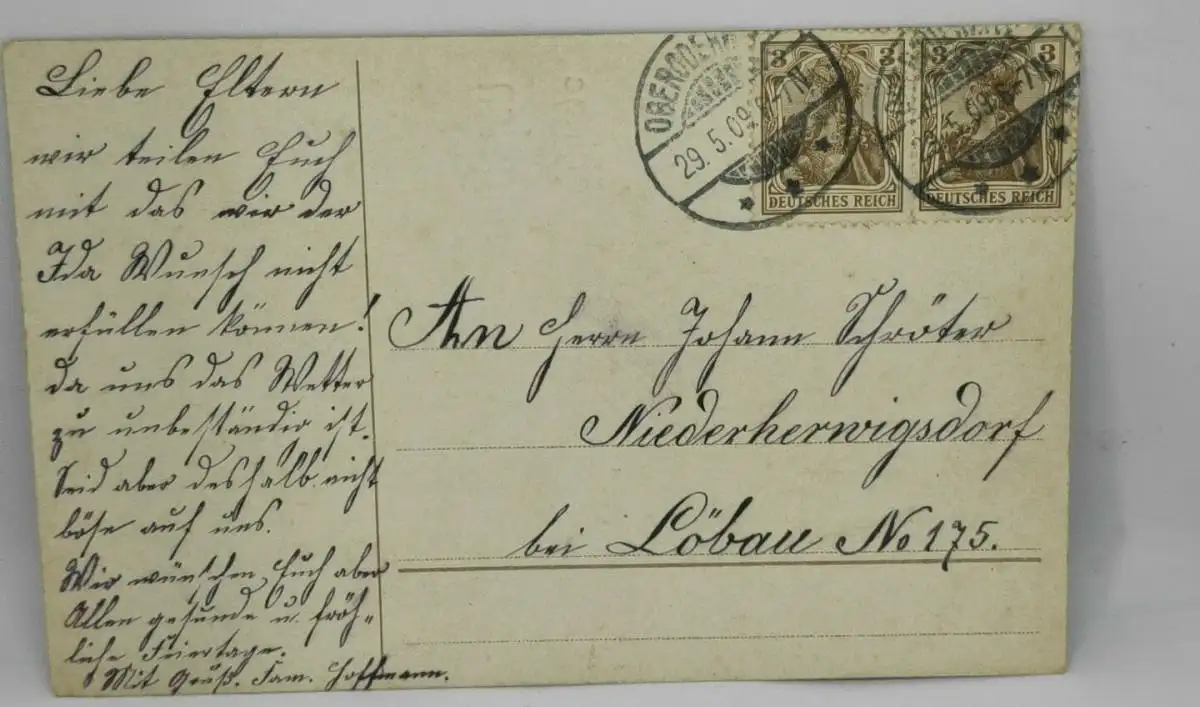 Liebe Eltern
wir teilen Euch
mit das wir der
Ida Wunsch nicht
erfüllen können!
da uns das Wetter
zu unbeständig ist.
Seid aber deshalb nicht
böse auf uns.
Wir wünschen Euch aber
Allen gesunde u. fröh-
liche Feiertage.
Mit Gruß. Fam. Hoffmann.
29. 5. 09
3 3
DEUTSCHES REICH
3 3
DEUTSCHES REICH
An Herrn Johann Schröter
Niederherwigsdorf
bei Löbau No 175.